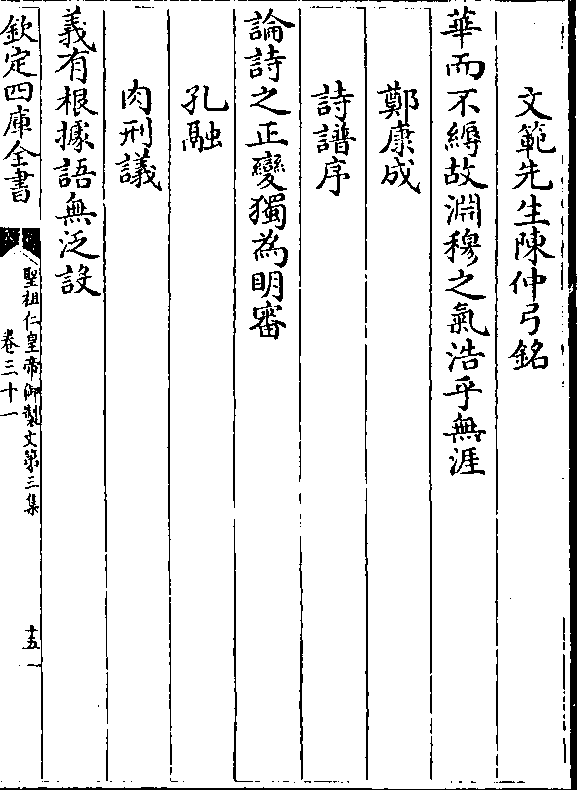 文範先生陳仲弓銘
華而不縟故淵穆之氣浩乎無涯
鄭康成
詩譜序
論詩之正變獨為明審
孔融
肉刑議
義有根據語無泛設
欽定四庫全書
聖祖仁皇帝御製文第三集
卷三十一
十五